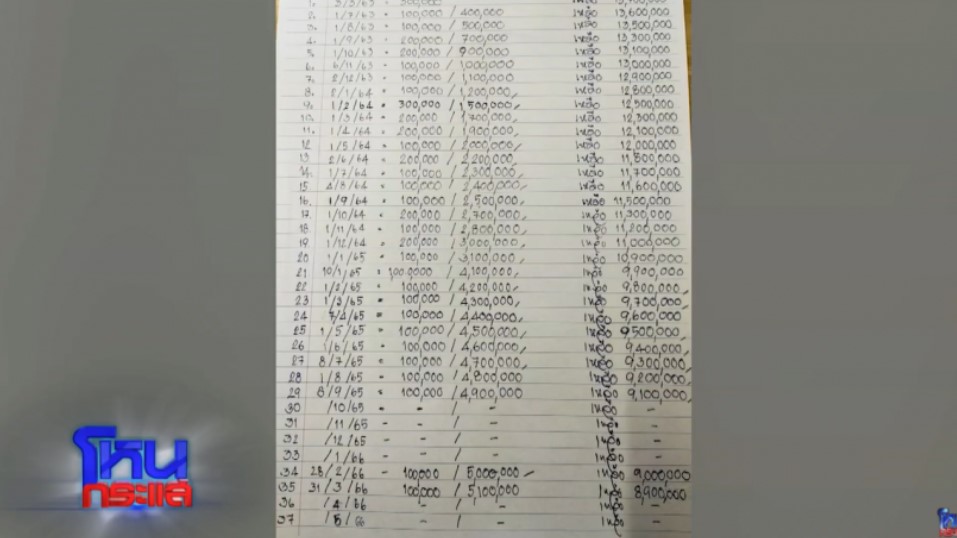 1. 3/3/63 = 300,000 เหลือ 13,700,000
2. 1/7/63 = 100,000 / 400,000 เหลือ 13,600,000
3. 1/8/63 = 100,000 / 500,000 เหลือ 13,500,000
4. 1/9/63 = 200,000 / 700,000 เหลือ 13,300,000
5. 1/10/63 = 200,000 / 900,000 เหลือ 13,100,000
6. 6/11/63 = 100,000 / 1,000,000 เหลือ 13,000,000
7. 2/12/63 = 100,000 / 1,100,000 เหลือ 12,900,000
8. 2/1/64 = 100,000 / 1,200,000 เหลือ 12,800,000
9. 1/2/64 = 300,000 / 1,500,000 เหลือ 12,500,000
10. 1/3/64 = 200,000 / 1,700,000 เหลือ 12,300,000
11. 1/4/64 = 200,000 / 1,900,000 เหลือ 12,100,000
12 1/5/64 = 100,000 / 2,000,000 เหลือ 12,000,000
13 2/6/64 = 200,000 / 2,200,000 เหลือ 11,800,000
14. 1/7/64 = 100,000 / 2,300,000 เหลือ 11,700,000
15 4/8/64 = 100,000 / 2,400,000 เหลือ 11,600,000
16. 1/9/64 = 100,000 / 2,500,000 เหลือ 11,500,000
17. 1/10/64 = 200,000 / 2,700,000 เหลือ 11,300,000
18. 1/11/64 = 100,000 / 2,800,000 เหลือ 11,200,000
19 1/12/64 = 200,000 / 3,000,000 เหลือ 11,000,000
20 1/1/65 = 100,000 / 3,100,000 เหลือ 10,900,000
21 10/1/65 = 100,0000 / 4,100,000 เหลือ 9,900,000
22 1/2/65 = 100,000 / 4,200,000 เหลือ 9,800,000
23 1/3/65 = 100,000 / 4,300,000 เหลือ 9,700,000
24 7/4/65 = 100,000 / 4,400,000 เหลือ 9,600,000
25 1/5/65 = 100,000 / 4,500,000 เหลือ 9,500,000
26 1/6/65 = 100,000 / 4,600,000 เหลือ 9,400,000
27 8/7/65 = 100,000 / 4,700,000 เหลือ 9,300,000
28 1/8/65 = 100,000 / 4,800,000 เหลือ 9,200,000
29 8/9/65 = 100,000 / 4,900,000 เหลือ 9,100,000
30 /10/65 - - / - เหลือ -
31 /11/65 - - / - เหลือ -
32 /12/65 - - / - เหลือ -
33 /1/66 - - / - เหลือ -
34 28/2/66 - 100,000 / 5,000,000 เหลือ 9,000,000
35 31/3/66 100,000 / 5,100,000 เหลือ 8,900,000
36 /4/66 - / - เหลือ -
37 /5/66 - / - เหลือ -
โหน
กระแส